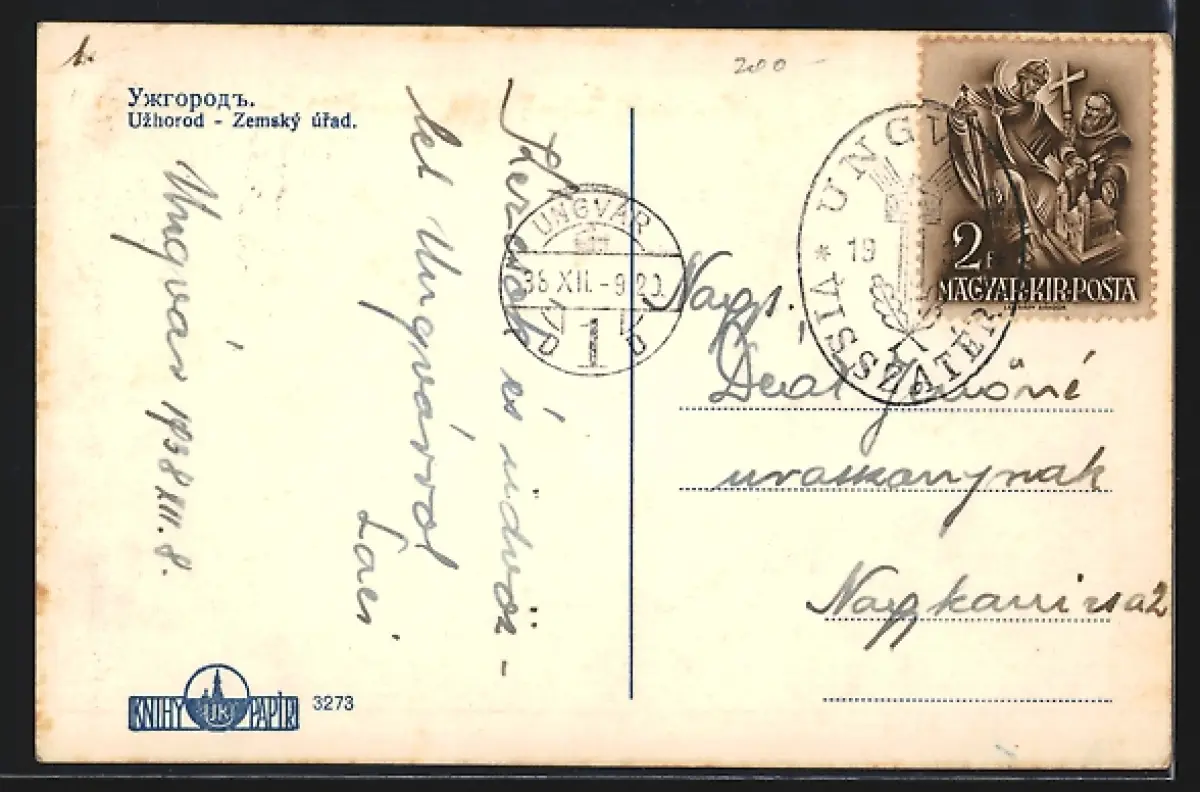 200 -
Ужгородъ.
Užhorod - Zemský úřad.
Ungvár 1938 XII. 8.
és üdvöz-
let Ungvárról
Laci
UNGVÁR
XII. - 9 20
1
D D
UNGV
19
VISSZATÉR
2 f
MAGYAR·KIR·POSTA
Nagys.
Deák Jenőné
uraszonynak
Nagykanizsa
KNIHY UK PAPÍR 3273